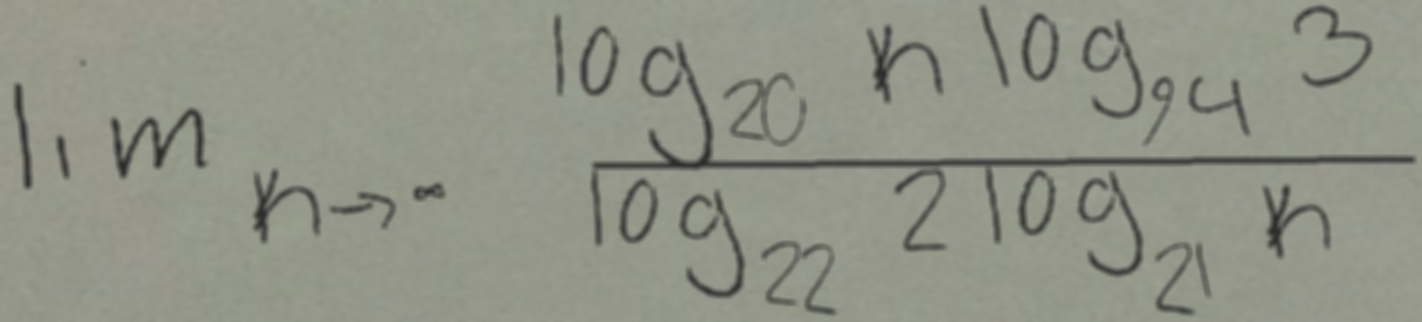 \lim_{n \to \infty} \frac{\log_{20} n \log_{94} 3}{\log_{22} 2 \log_{21} n}